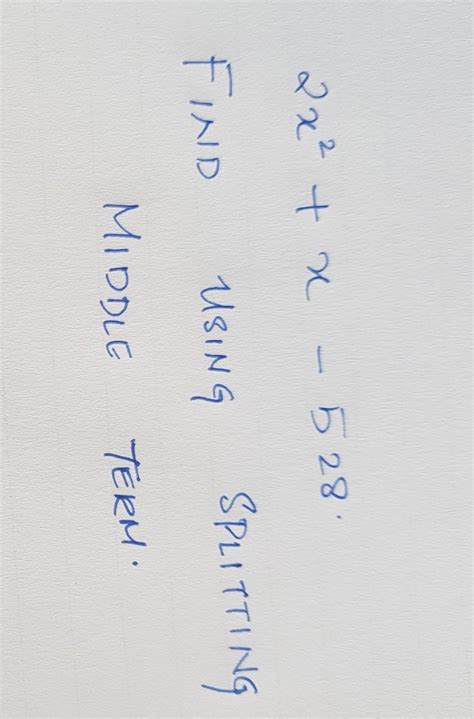 2x² + x - 528.
FIND USING SPLITTING
MIDDLE TERM.